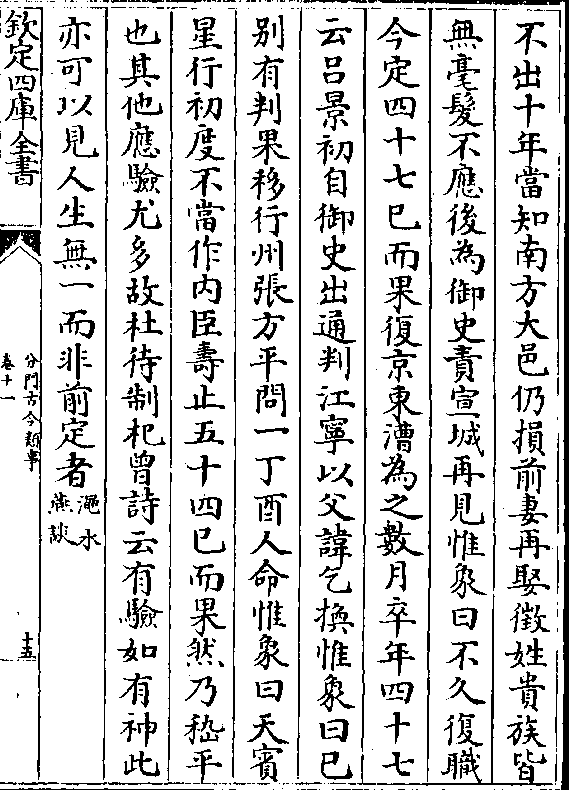 不出十年當知南方大邑仍損前妻再娶徵姓貴族皆
無毫髮不應後為御史責宣城再見惟象曰不久復職
今定四十七已而果復京東漕為之數月卒年四十七
云吕景初自御史出通判江寧以父諱乞換惟象曰已
别有判果移行州張方平問一丁酉人命惟象曰天賓
星行初度不當作内臣壽止五十四已而果然乃嵇平
也其他應驗尤多故杜待制杞曾詩云有驗如有神此
亦可以見人生無一而非前定者澠水
燕談
欽定四庫全書
分門古今類事
卷十一
十五